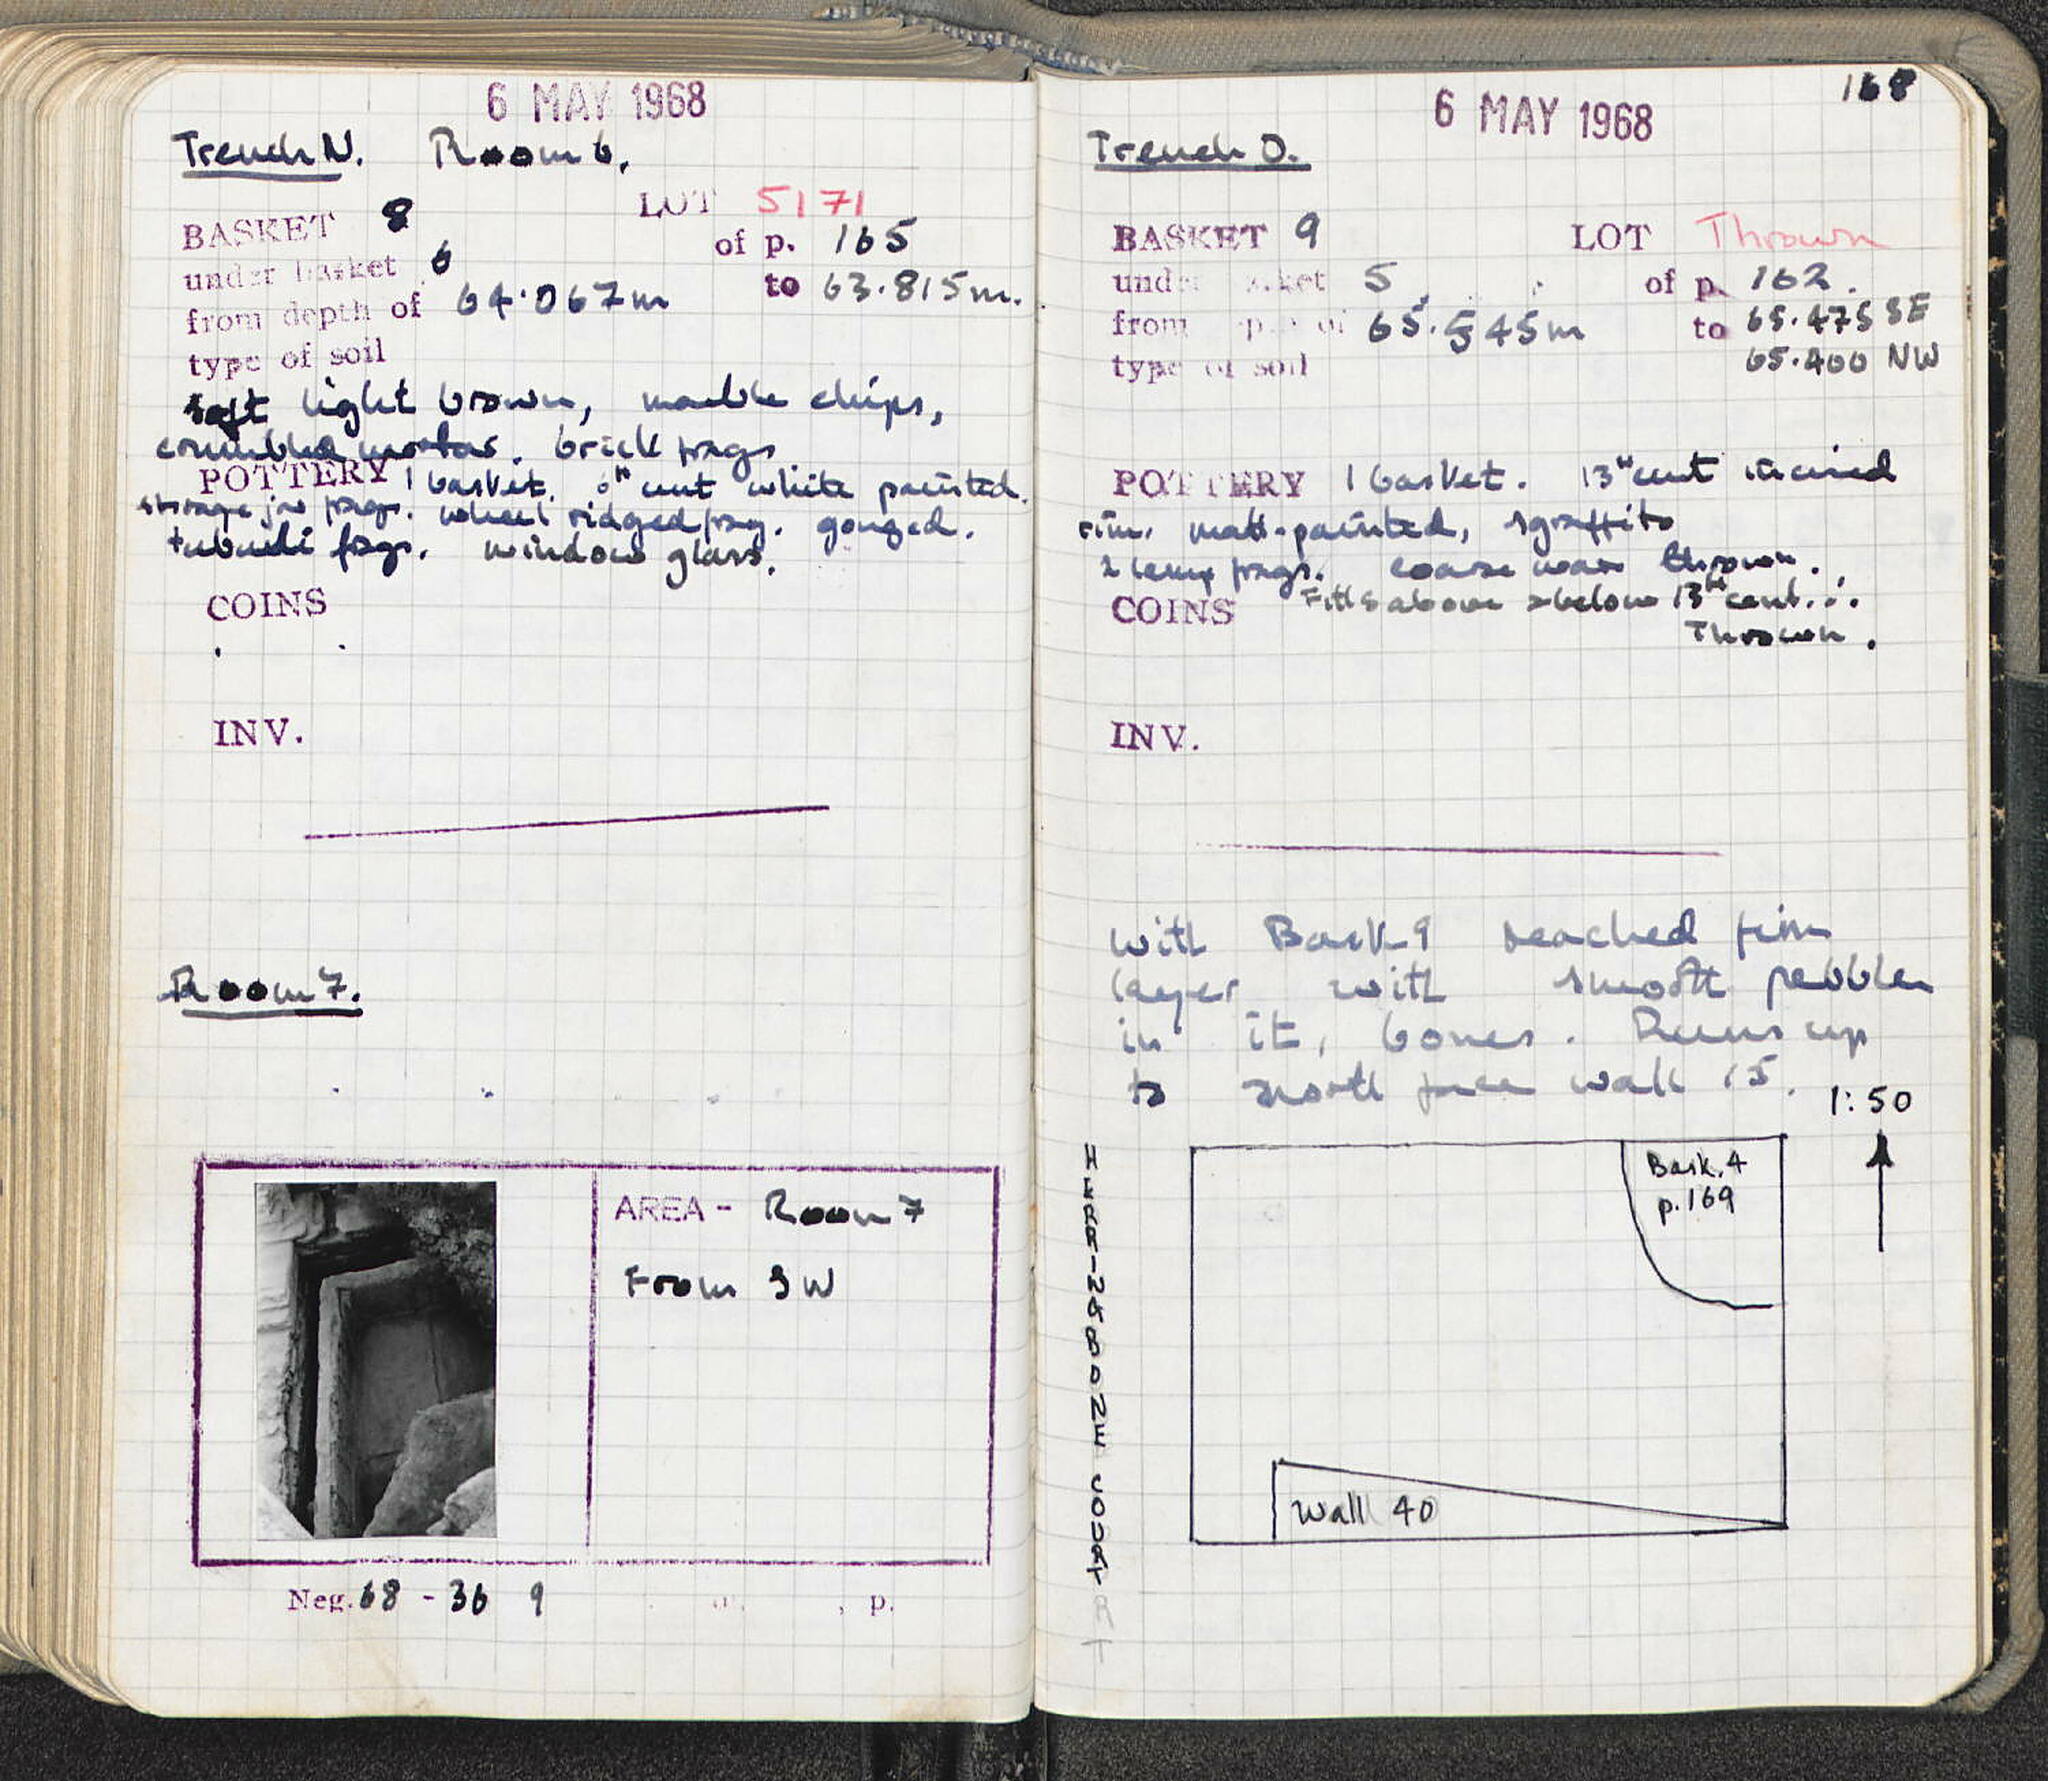 6 MAY 1968
Trench N. Room 6.
LOT 5171
BASKET 8
of p. 165
under basket 6
to 63.815m.
from depth of 64.067m
type of soil
soft light brown, marble chips,
crumbled mortar. brick frags
POTTERY 1 basket. 6th cent white painted.
storage jar frags. wheel ridged frag. gouged.
tubuli frags. window glass.
COINS
INV.
Room 7.
AREA - Room 7
From SW
Neg. 68 - 36 9
, p.
168
6 MAY 1968
Trench O.
BASKET 9 LOT Thrown
under basket 5 of p. 162.
from depth of 65.545m to 65.475 SE
type of soil 65.400 NW
POTTERY 1 basket. 13th cent incised
rim, matt-painted, sgraffito
2 lamp frags. coarse ware thrown.
Fills above & below 13th cent. ∴
COINS Thrown.
INV.
With Bask 9 reached firm
layer with smooth pebbles
in it, bones. Runs up
to north face wall 15.
1:50
HERRINGBONE COURT
RT
Bask. 4
p. 169
Wall 40